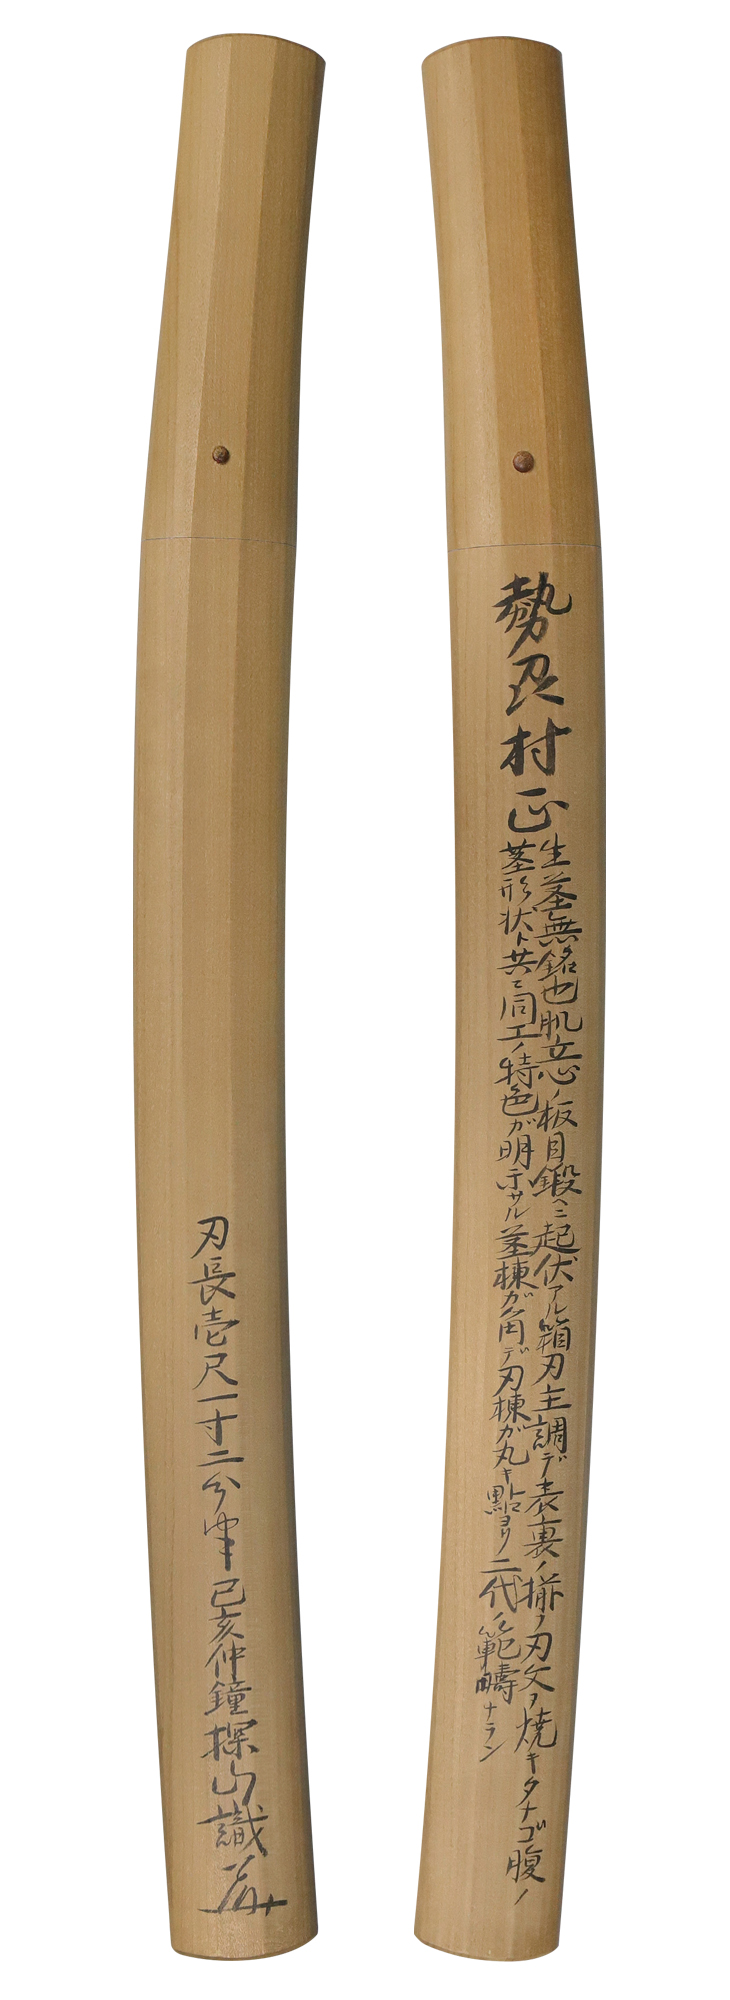 勢州村正
生茎無銘也肌立心ノ板目鍛ヘニ起伏アル箱刃主調デ表裏ノ揃フ刃文ヲ焼キタナゴ腹ノ
茎形状ト共ニ同工ノ特色ガ明示サル茎棟ガ角デ刃棟ガ丸キ點ヨリ二代ノ範疇ナラン
刃長壱尺一寸二分半己亥仲鐘探山識